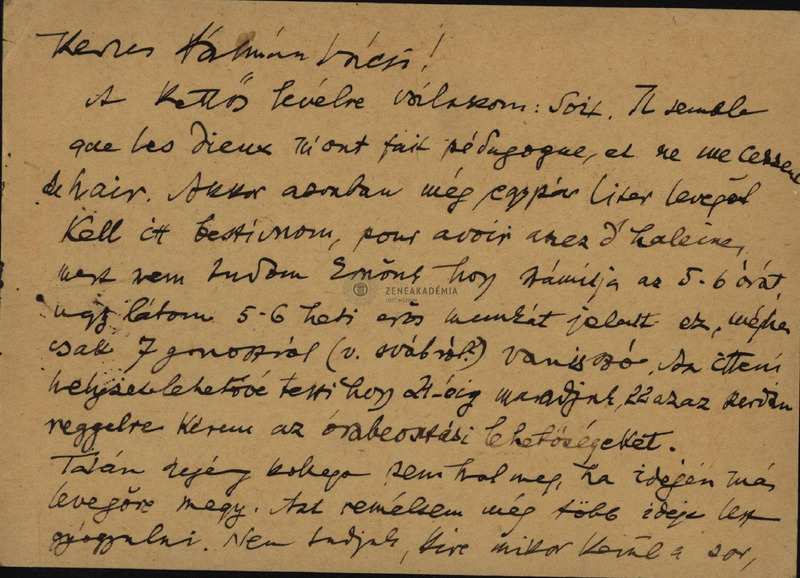 Kedves Kálmán bácsi!
A Kettős levélre válaszom: Soit. Il semble
que les dieux m'ont fait pédagogue, et ne me cessent
de hair. Akkor azonban még egypár liter levegőt
Kell itt beszívnom, pour avoir assez d'haleine,
mert nem tudom Ernőnk hogy számítja az 5-6 órát
úgy látom 5-6 heti erős munkát jelent ez, mégha
csak 7 gonoszról (v. svábról?) van is szó. Az itteni
helyzet lehetővé teszi hogy 21-éig maradjunk, 22 azaz szerdán
reggelre Kérem az órabeosztási lehetőségeket.
Talán szegény kollega sem hal meg, ha idején más
levegőre megy. Azt remélem még több ideje lesz
gyógyulni. Nem tudjuk, kire mikor kerül a sor,
ZENEAKADÉMIA